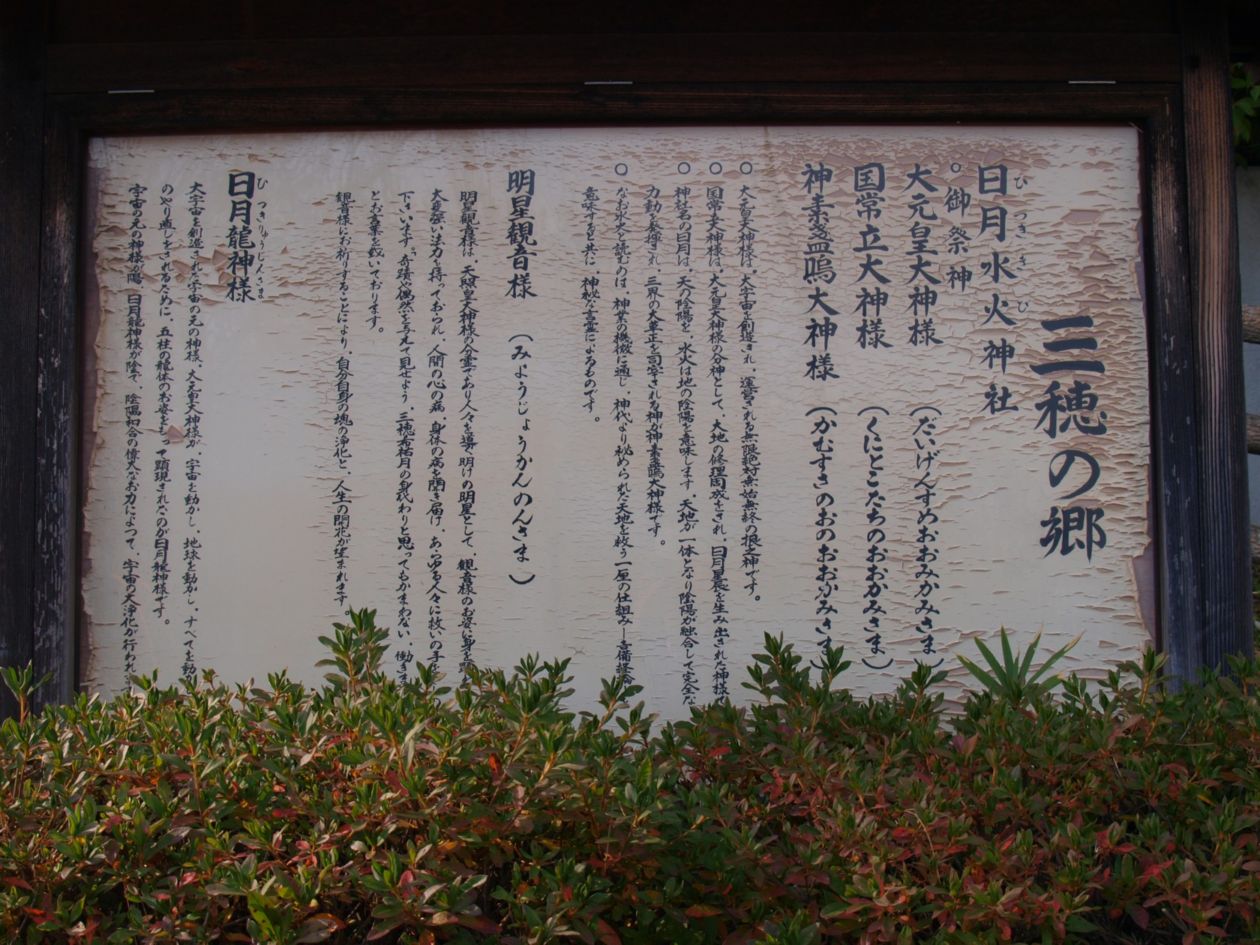 三穂の郷
日月水火神社
ひつきひ
○御祭神
大元皇大神様 (だいげんすめおおみかみさま)
国常立大神様 (くにとこたちのおおかみさま)
神素盞嗚大神様 (かむすさのおのおおかみさま
○大元皇大神様は、大宇宙を創造され、運営される無限絶対無始無終の根之神です。
○国常立大神様は、大元皇大神様の分神として、大地の修理固成をされ、日月星辰を生み出された神様
○神社名の日月は、天の陰陽を、水火は地の陰陽を意味します。天地が一体となり陰陽が融合して完全な
力動を発揮され、三界の大革正を司宰される神が神素盞嗚大神様です。
○なお水火と読むのは、神業の機微に通じ、神代より秘められた天地を救う一厘の仕組み
意味すると共に、神秘な言霊によるものです。
明星観音様 (みょうじょうかんのんさま)
明星観音様は、天照皇大神様の分霊であり人々を導く明けの明星として、観音様のお姿に身を
大変強い法力を持っておられ、人間の心の病、身体の病を聞き届け、あらゆる人々に救いの手を
下さいます。「奇蹟や偶然と言えて見えよう、三穂希祐月の身代わりと思ってもかまわない、働き
とお言葉を戴いております。
観音様にお祈りすることにより、自分自身の魂の浄化と、人生の開花が望まれます。
日月龍神様
ひつきりゅうじんさま
大宇宙を創造され宇宙の元の神様、大元皇大神様が、宇宙を動かし、地球を動かし、すべてを動
のやり通しをされるために、五柱の龍体のお姿をとって顕現されたのが日月龍神様です。
宇宙の元の神様が陽、日月龍神様が陰で、陰陽和合の偉大なお力によって、宇宙の大浄化が行われ